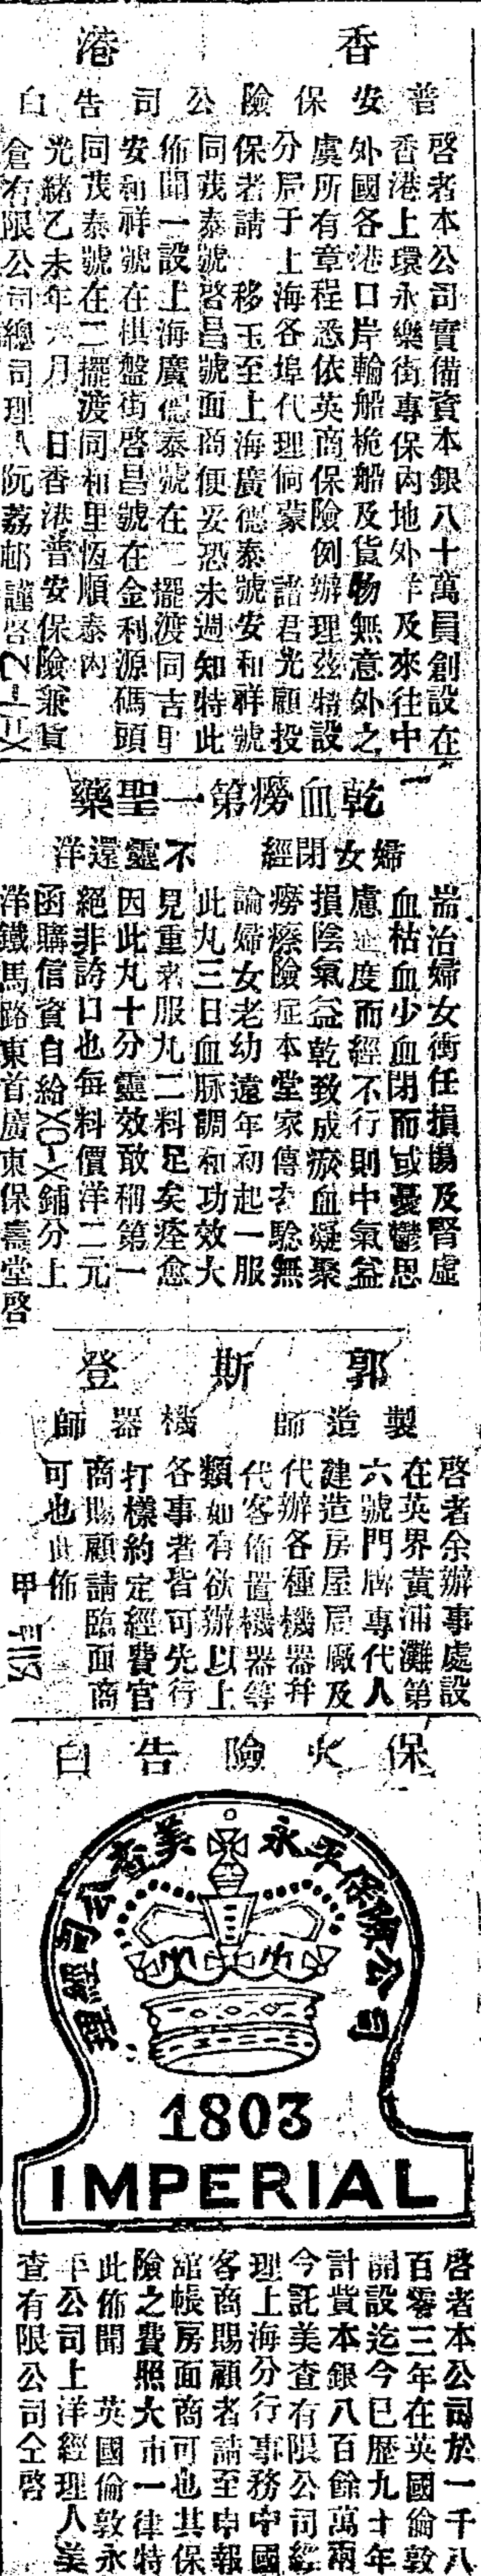 香港
普安保險公司告白
啓者本公司實備資本銀八十萬員創設在
香港上環永樂街專保內地外洋及來往中
外國各港口岸輪船桅船及貨物無意外之
虞所有章程悉依英商保險例辦理茲特設
分局于上海各埠代理倘蒙 諸君光顧投
保者請 移玉至上海廣德泰號安和祥號
同茂泰號啓昌號面商便妥恐未週知特此
佈聞一設上海廣德泰號在二擺渡同吉里
安和祥號在棋盤街啓昌號在金利源碼頭
同茂泰號在二擺渡同和里恆順泰內
光緒乙未年六月 日香港普安保險兼貨
倉有限公司總司理人阮荔邨謹啓
乾血癆第一聖藥
婦女閉經 不靈還洋
耑治婦女衝任損傷及腎虛
血枯血少血閉而或憂鬱思
慮過度而經不行則中氣益
損陰氣益乾致成瘀血凝聚
癆瘵險症本堂家傳 驗無
論婦女老幼遠年初起一服
此丸三日血脉調和功效大
見重者服九二料足矣痊愈
因此丸十分靈效敢稱第一
絕非誇口也每料價洋二元
函購信資自給 鋪分上
洋鐵馬路東首廣東保壽堂啓
郭斯登
製造師 機器師
啓者余辦事處設
在英界黃浦灘第
六號門牌專代人
建造房屋局廠及
代辦各種機器幷
代客佈置機器等
類如有欲辦以上
各事者皆可先行
打樣約定經費官
商賜顧請臨面商
可也此佈
甲
保火險告白
永平保險公司
美查公司經理
1803
IMPERIAL
啓者本公司於一千八
百零三年在英國倫敦
開設迄今已歷九十年
計貲本銀八百餘萬兩
今託美查有限公司經
理上海分行事務中國
客商賜顧者請至申報
館帳房面商可也其保
險之費照大市一律特
此佈聞 英國倫敦永
平公司上洋經理人美
查有限公司仝啓